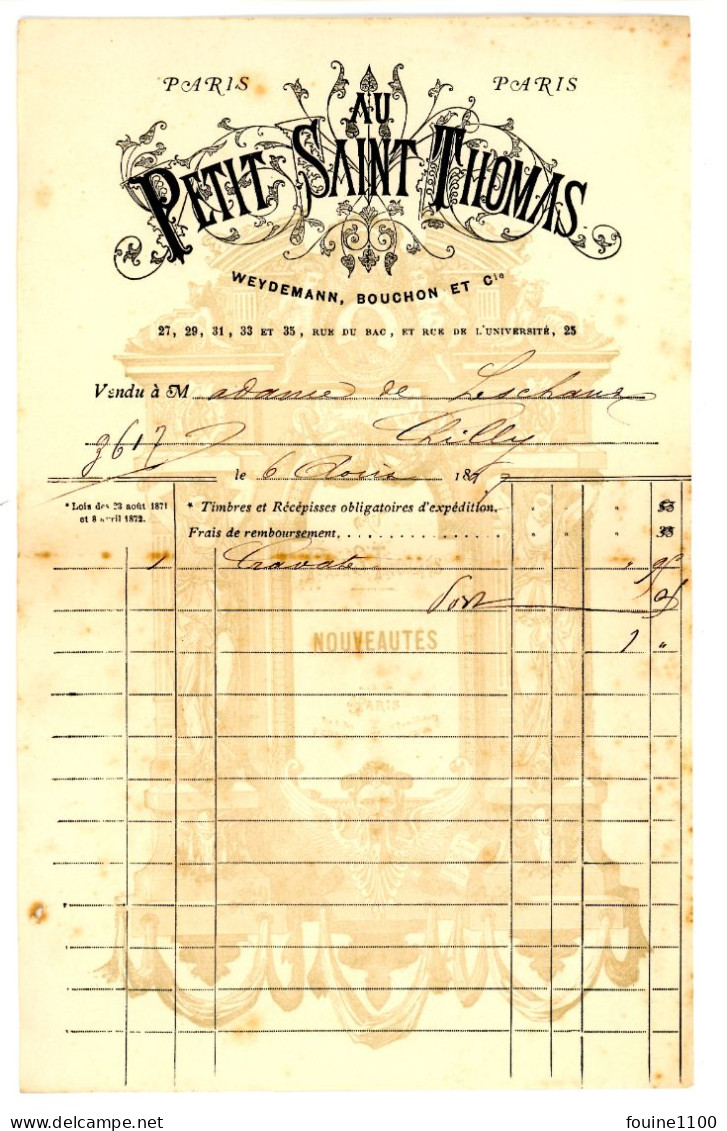 PARIS PARIS
AU
PETIT SAINT THOMAS
WEYDEMANN, BOUCHON ET Cie
27, 29, 31, 33 ET 35, RUE DU BAC, ET RUE DE L'UNIVERSITÉ, 25
Vendu à Madame de
3617 Chilly
le 6 Août 187
* Lois des 23 août 1871
et 8 avril 1872.
* Timbres et Récépisses obligatoires d'expédition.
Frais de remboursement
1 Cravate
Port
1 "
NOUVEAUTÉS
PARIS
fouine1100
Delcampe.net